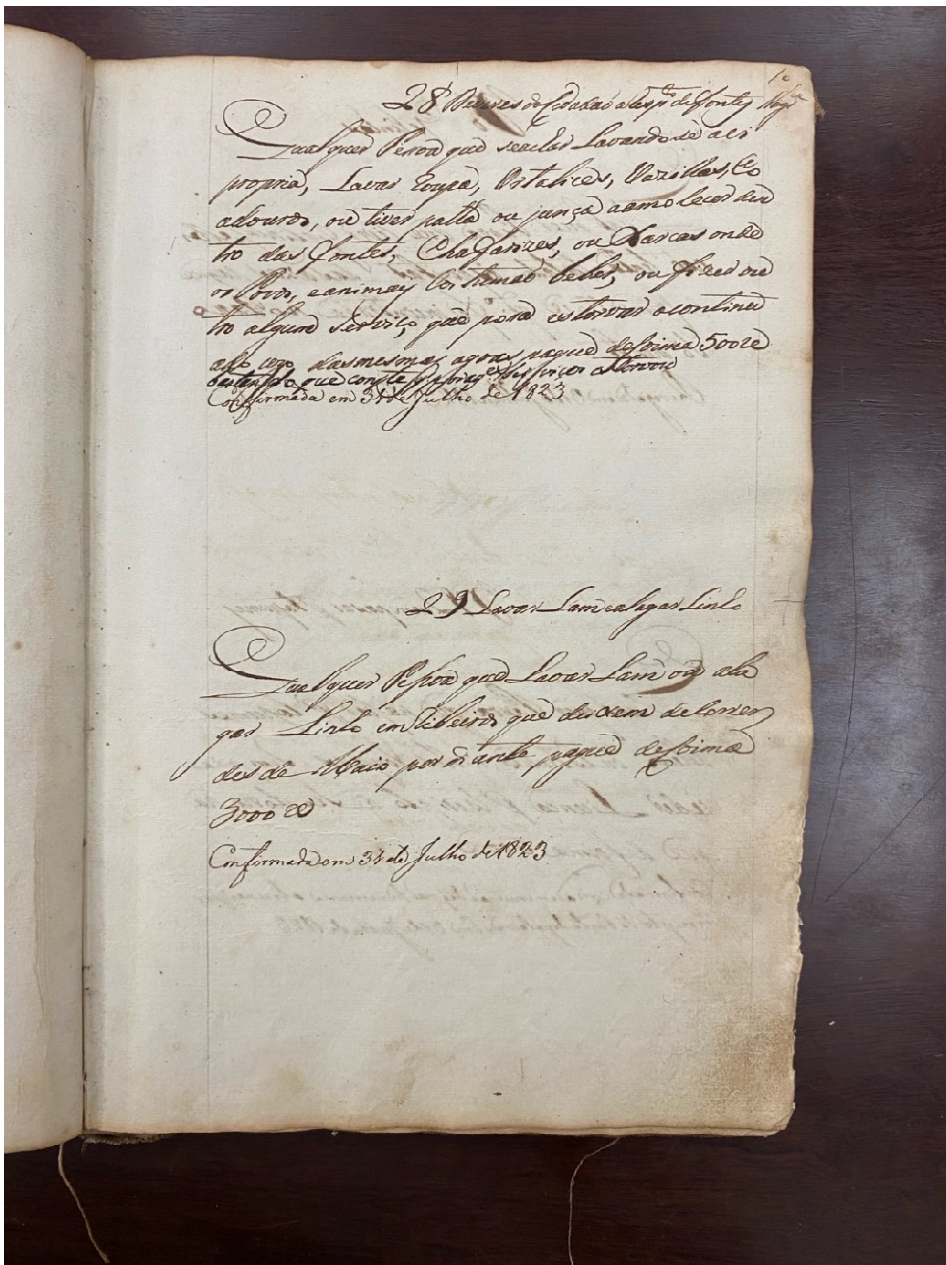 28 de
Qualquer Pessoa que se achar Lavando-se a si
propria, Lavar Roupa, Ortalices, Vazilhas, Co
adouros, ou tiver palha ou junça a amolecer den
tro das Fontes, Chafarizes, ou Xarcas onde
os Povos, e animays costumaõ beber, ou fizer ou
tro algum serviço, que possa estorvar o continu
ado uzo das mesmas agoas pague de Coima 500 rs
bastando que conste
Confirmada em 31 de Julho de 1823
29 Lavar Lam e alagar Linho
Qualquer Pessoa que Lavar Lam ou ala
gar Linho em Ribeiros que deixem de correr
des de Maio por diante, pague de Coima
3000 rs
Confirmada em 31 de Julho de 1823